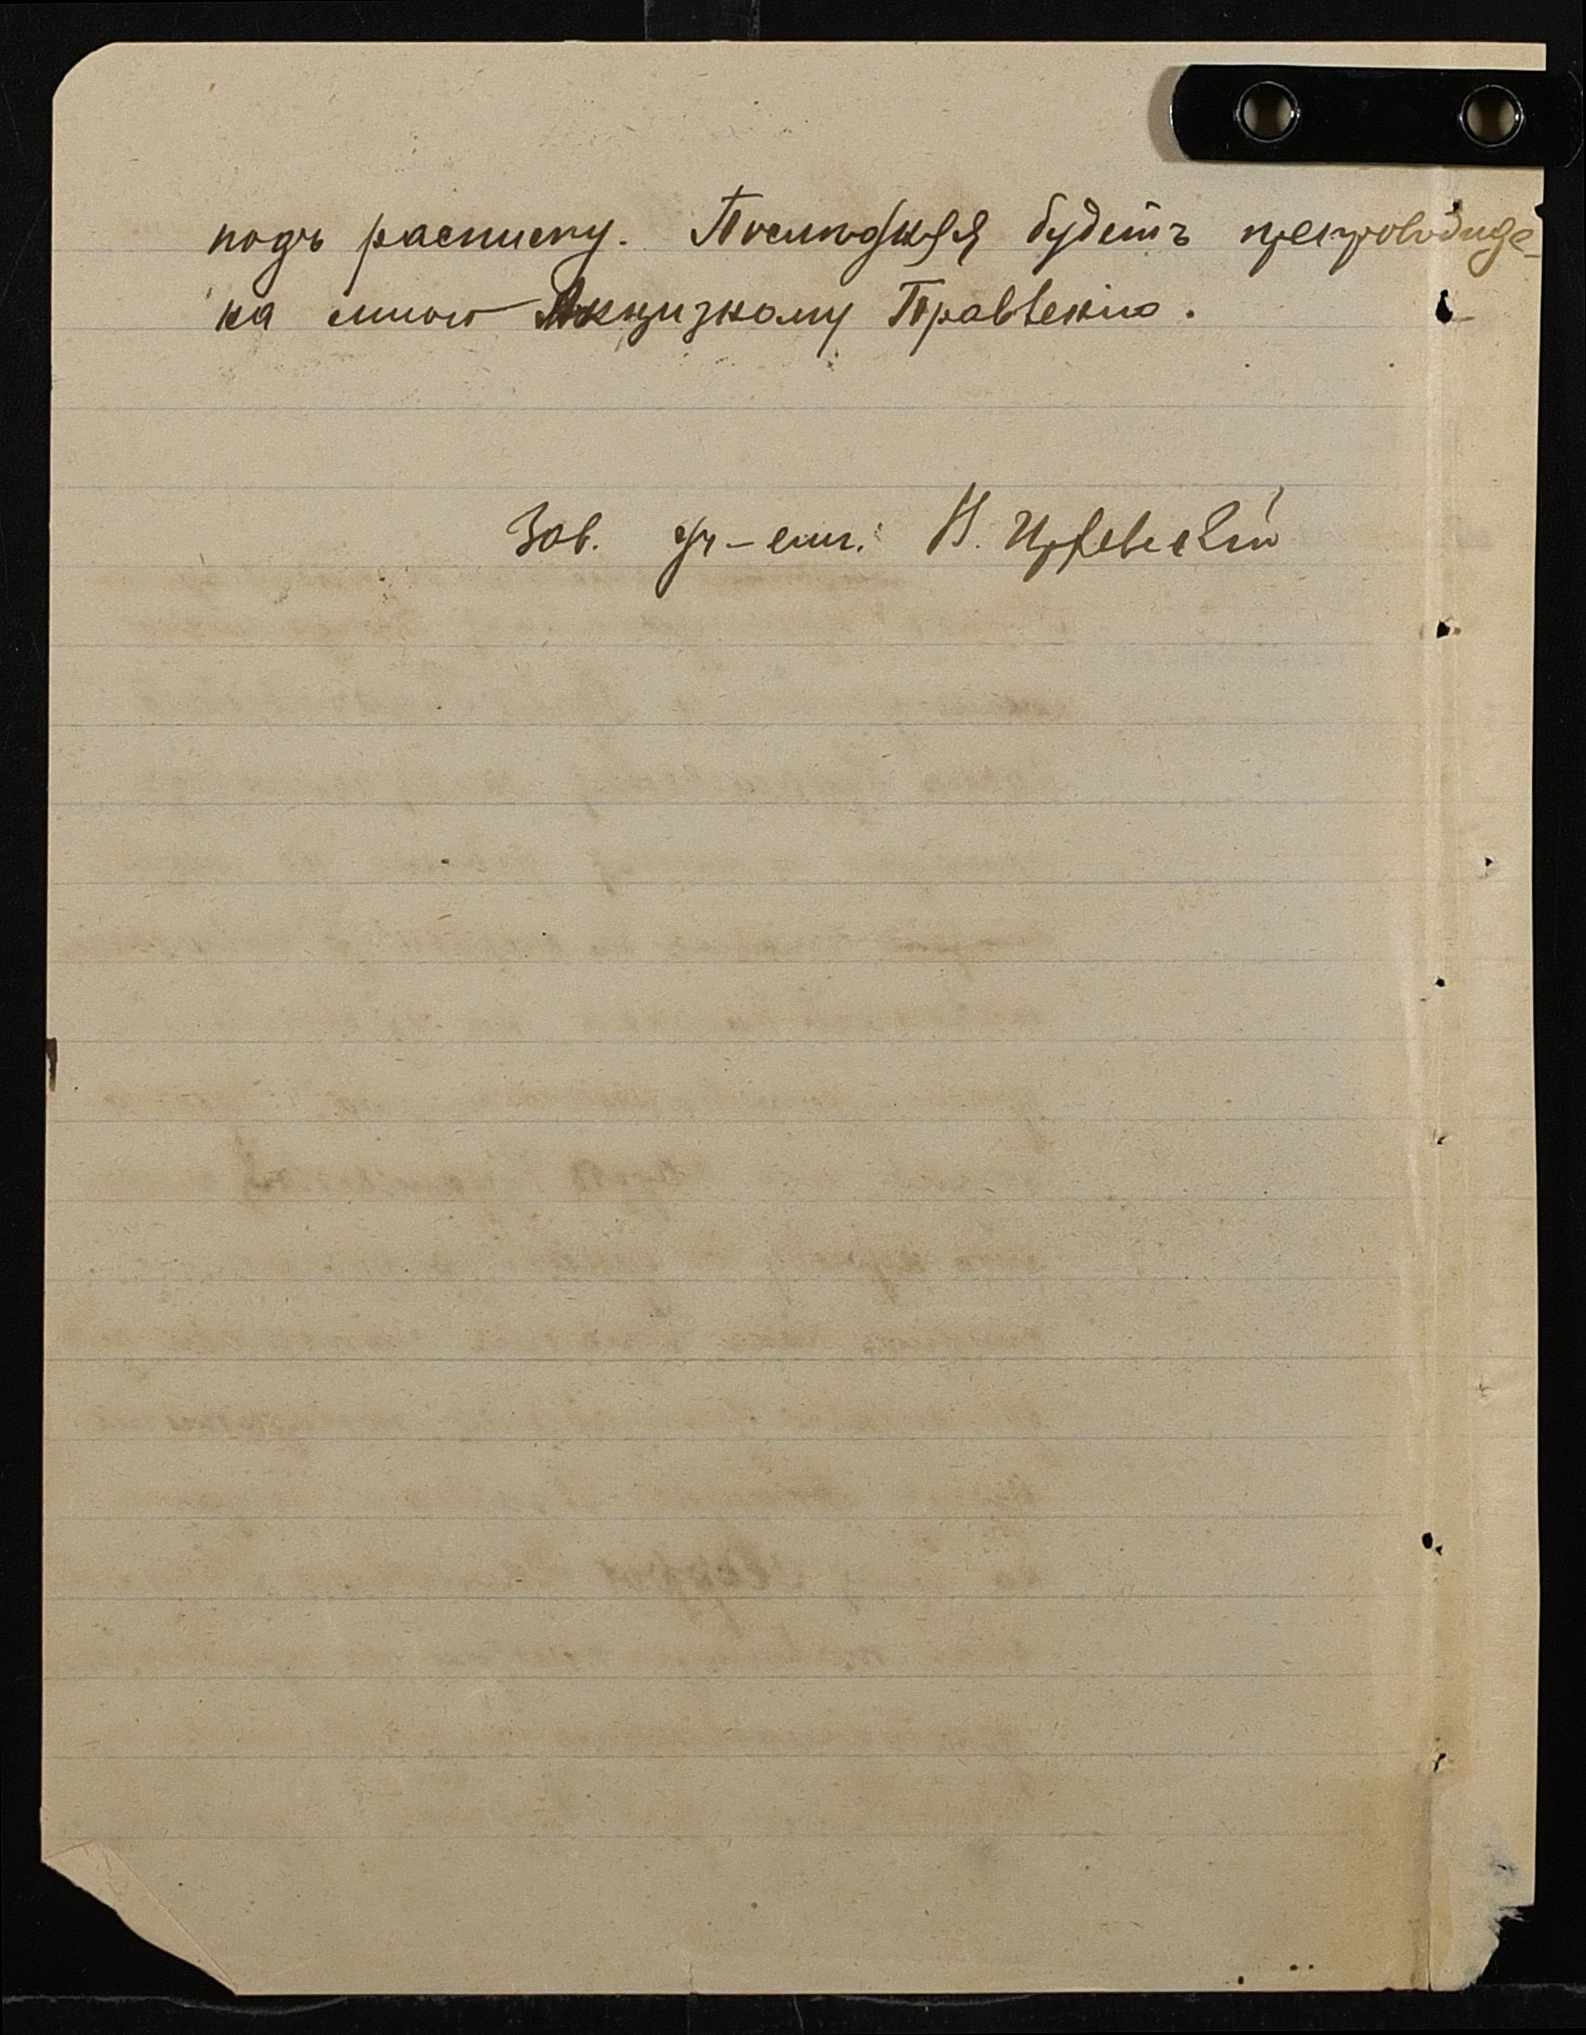 подъ расписку. Послѣдняя будетъ препровожде-
на мною Акцизному Правленію.
Зав. уч-емъ. Н.